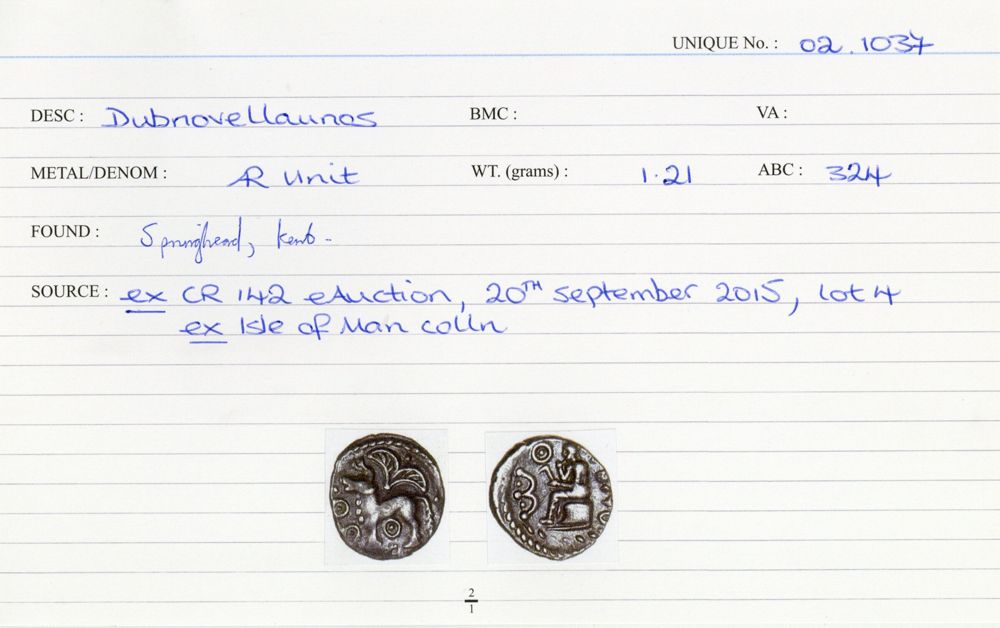 UNIQUE No. : 02.1037
DESC : Dubnovellaunos BMC : VA :
METAL/DENOM : AR Unit WT. (grams) : 1.21 ABC : 324
FOUND : Springhead, Kent.
SOURCE : ex CR 142 eAuction, 20TH September 2015, lot 4
ex Isle of Man colln
2
1